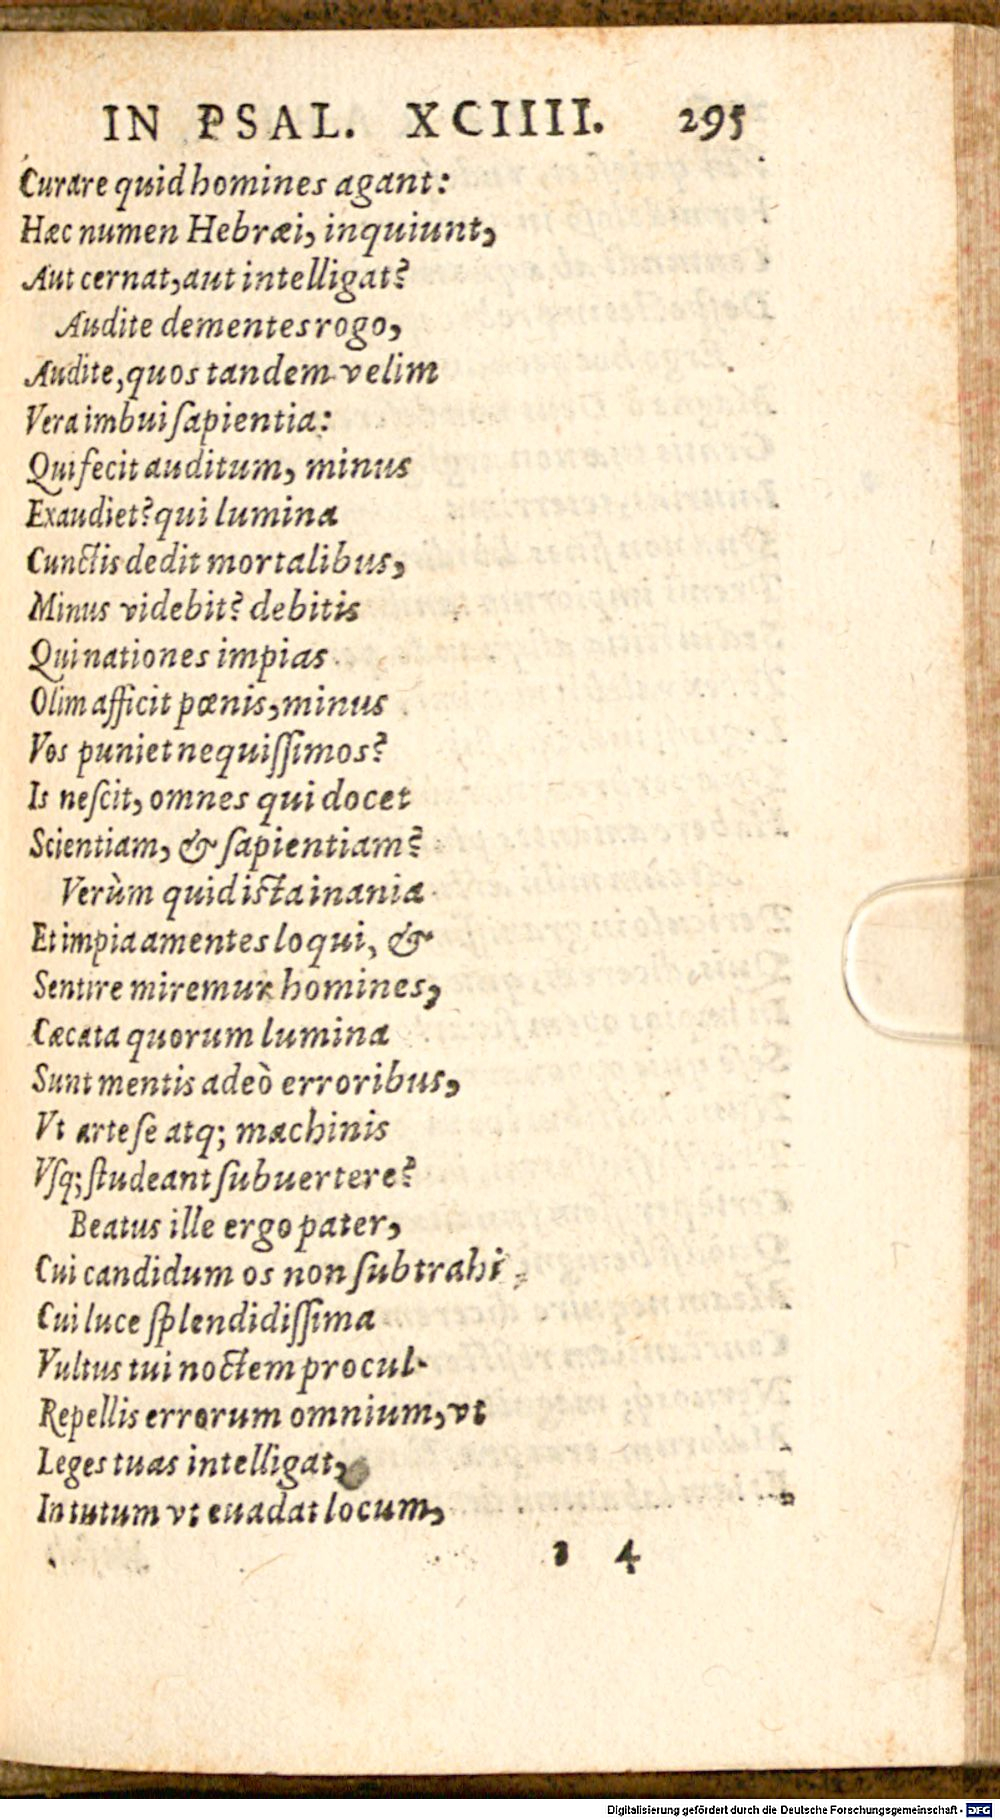 IN PSAL. XCIIII. 295
Curare quid homines agant:
Hæc numen Hebræi, inquiunt,
Aut cernat, aut intelligat?
Audite dementes rogo,
Audite, quos tandem velim
Vera imbui ſapientia:
Qui fecit auditum, minus
Exaudiet? qui lumina
Cunctis dedit mortalibus,
Minus videbit? debitis
Qui nationes impias
Olim afficit pœnis, minus
Vos puniet nequiſſimos?
Is neſcit, omnes qui docet
Scientiam, & ſapientiam?
Verùm quid iſta inania
Et impia amentes loqui, &
Sentire miremur homines,
Cæcata quorum lumina
Sunt mentis adeò erroribus,
Vt arte ſe atq; machinis
Vſq; ſtudeant ſubuertere?
Beatus ille ergo pater,
Cui candidum os non ſubtrahi
Cui luce ſplendidiſſima
Vultus tui noctem procul
Repellis errorum omnium, vt
Leges tuas intelligat,
In tutum vt euadat locum,
4
Digitalisierung gefördert durch die Deutsche Forschungsgemeinschaft - DFG